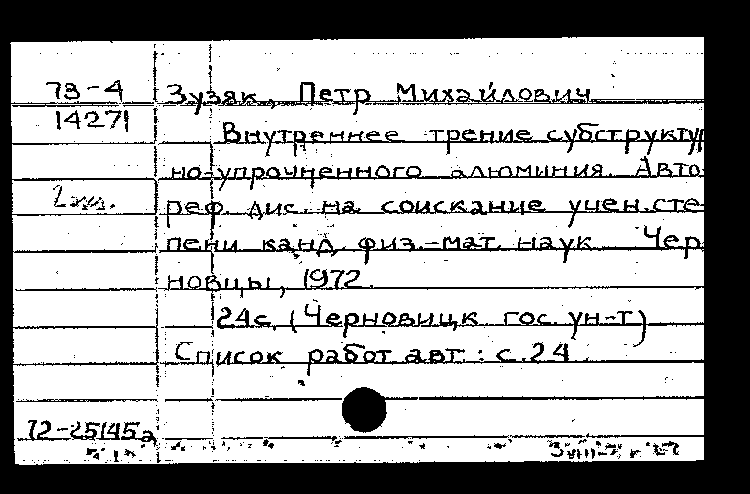 73-4 Зузяк, Петр Михайлович
14271
Внутреннее трение субструктур
но-упрочненного алюминия. Авто-
реф. дис. на соискание учен. сте-
2 экз.
пени канд. физ.-мат. наук. Чер
новцы, 1972.
24с. (Черновицк. гос. ун-т)
Список работ авт.: с. 24.
72-25145а